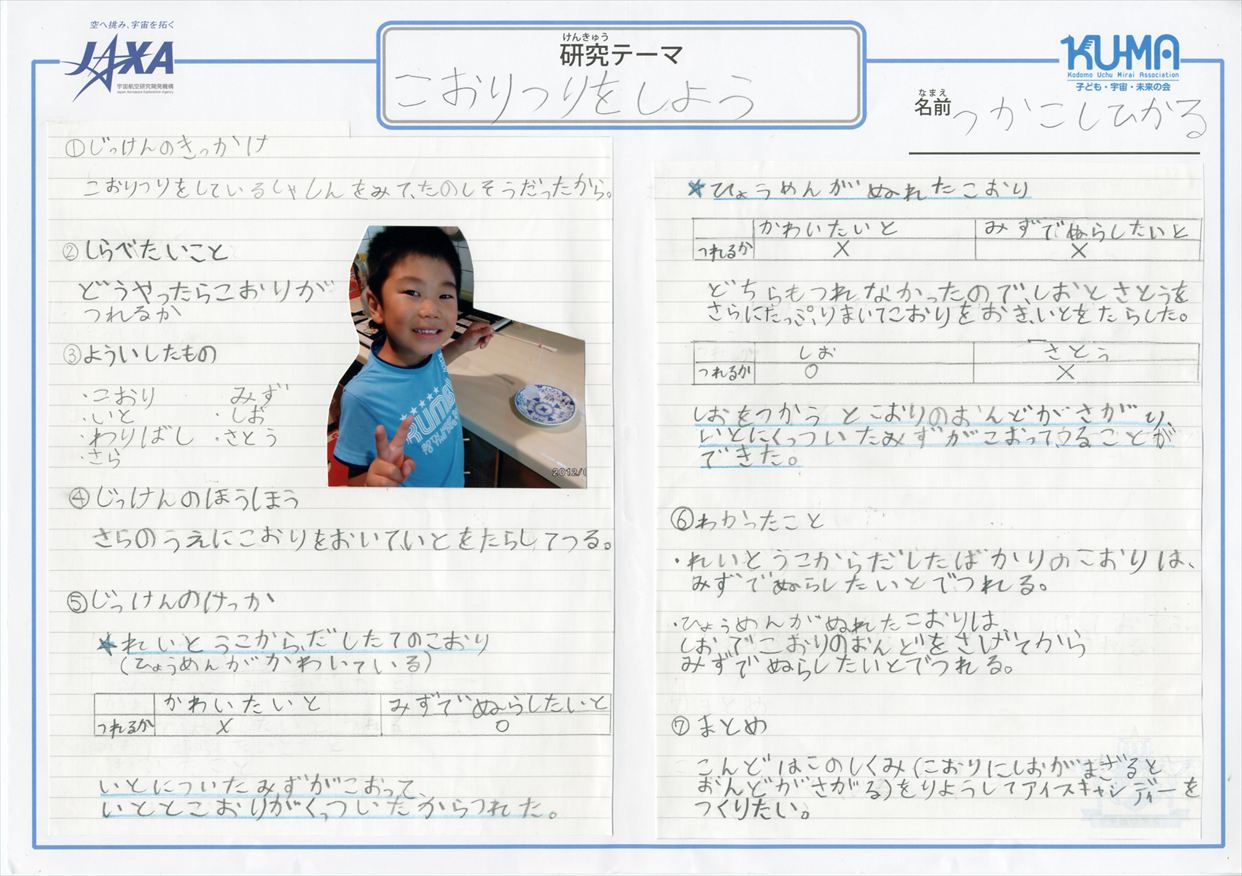 空へ挑み、宇宙を拓く
JAXA
宇宙航空研究開発機構
Japan Aerospace Exploration Agency
けんきゅう
研究テーマ
こおりつりをしよう
KU-MA
Kodomo Uchu Mirai Association
子ども・宇宙・未来の会
なまえ
名前 つかこしひかる
①じっけんのきっかけ
こおりつりをしているしゃしんをみて、たのしそうだったから。
②しらべたいこと
どうやったらこおりが
つれるか
③よういしたもの
・こおり みず
・いと ・しお
・わりばし ・さとう
・さら
④じっけんのほうほう
さらのうえにこおりをおいて、いとをたらしてつる。
⑤じっけんのけっか
★れいとうこから、だしたてのこおり
(ひょうめんがかわいている)
かわいたいと みずでぬらしたいと
つれるか × ○
いとについたみずがこおって、
いととこおりがくっついたからつれた。
KUMA
2012/
★ひょうめんがぬれたこおり
かわいたいと みずでぬらしたいと
つれるか × ×
どちらもつれなかったので、しおとさとうを
さらにたっぷりまいてこおりをおき、いとをたらした。
しお さとう
つれるか ○ ×
しおをつかうとこおりのおんどがさがり、
いとにくっついたみずがこおって、つることが
できた。
⑥わかったこと
・れいとうこからだしたばかりのこおりは、
みずでぬらしたいとでつれる。
・ひょうめんがぬれたこおりは、
しおでこおりのおんどをさげてから
みずでぬらしたいとでつれる。
⑦まとめ
こんどはこのしくみ(こおりにしおがまざると
おんどがさがる)をりようしてアイスキャンディーを
つくりたい。